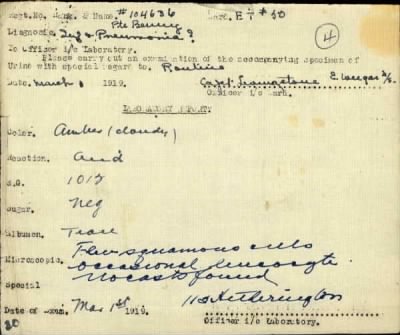 Regt.No. Rank. & Name. #104636 Pte Benny Ward. E 1 #50
4
Diagnosis. Inf & Pneumonia ?
To Officer i/c Laboratory.
Please carry out an examination of the accompanying specimen of
Urine with special regard to. Routine
Date. March 1 1919. Capt. Livingstone
Officer i/c Ward.
LABORATORY REPORT
Color. Amber (cloudy)
Reaction. Acid
S.G. 1012
Sugar. Neg
Albumen. Trace
Microscopic. Few squamous cells
occasional leucocyte
No casts found
Special
Date of Exam. Mar 1st 1919. Hetherington
Officer i/c Laboratory.
20